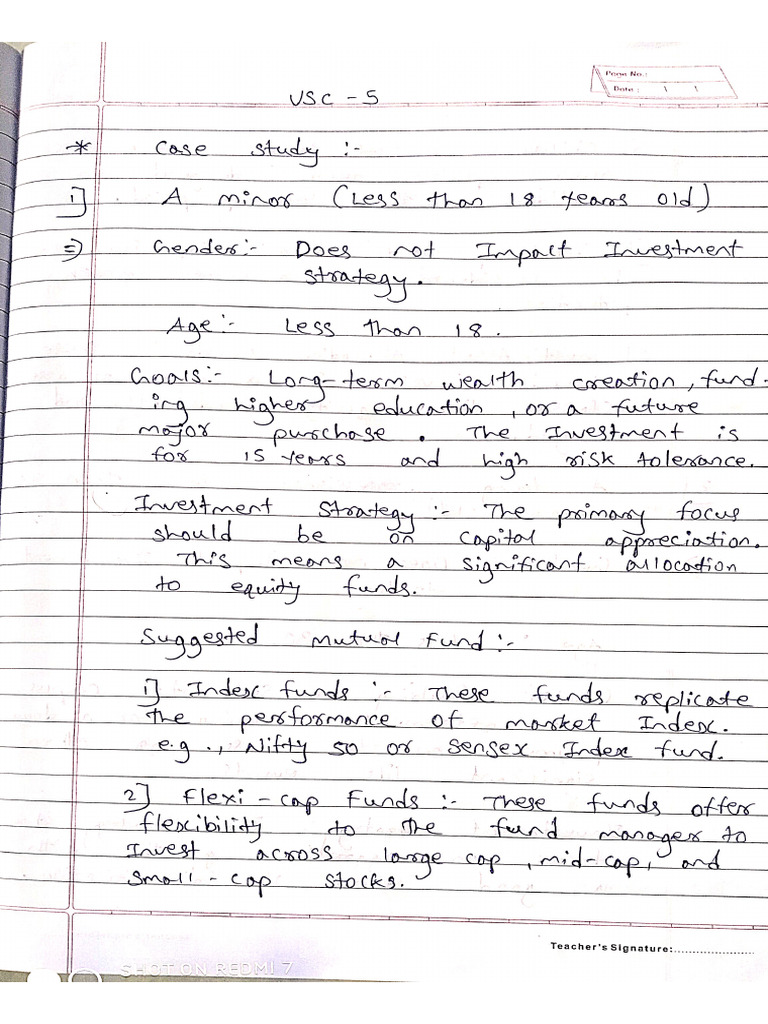 Page No.:
Date : / /
VSC - 5
* Case study :-
1] A minor (Less than 18 Years old)
=> Gender:- Does not Impact Investment
strategy.
Age :- Less than 18.
Goals:- Long-term wealth creation, fund-
ing higher education, or a future
major purchase. The Investment is
for 15 Years and high risk tolerance.
Investment Strategy :- The primary focus
should be on capital appreciation.
This means a significant allocation
to equity funds.
Suggested Mutual Fund :-
1] Index funds :- These funds replicate
the performance of market Index.
e.g., Nifty 50 or Sensex Index fund.
2] Flexi-cap Funds :- These funds offer
flexibility to the fund manager to
Invest across large cap, mid-cap, and
Small-cap stocks.
Teacher's Signature:........................
SHOT ON REDMI 7